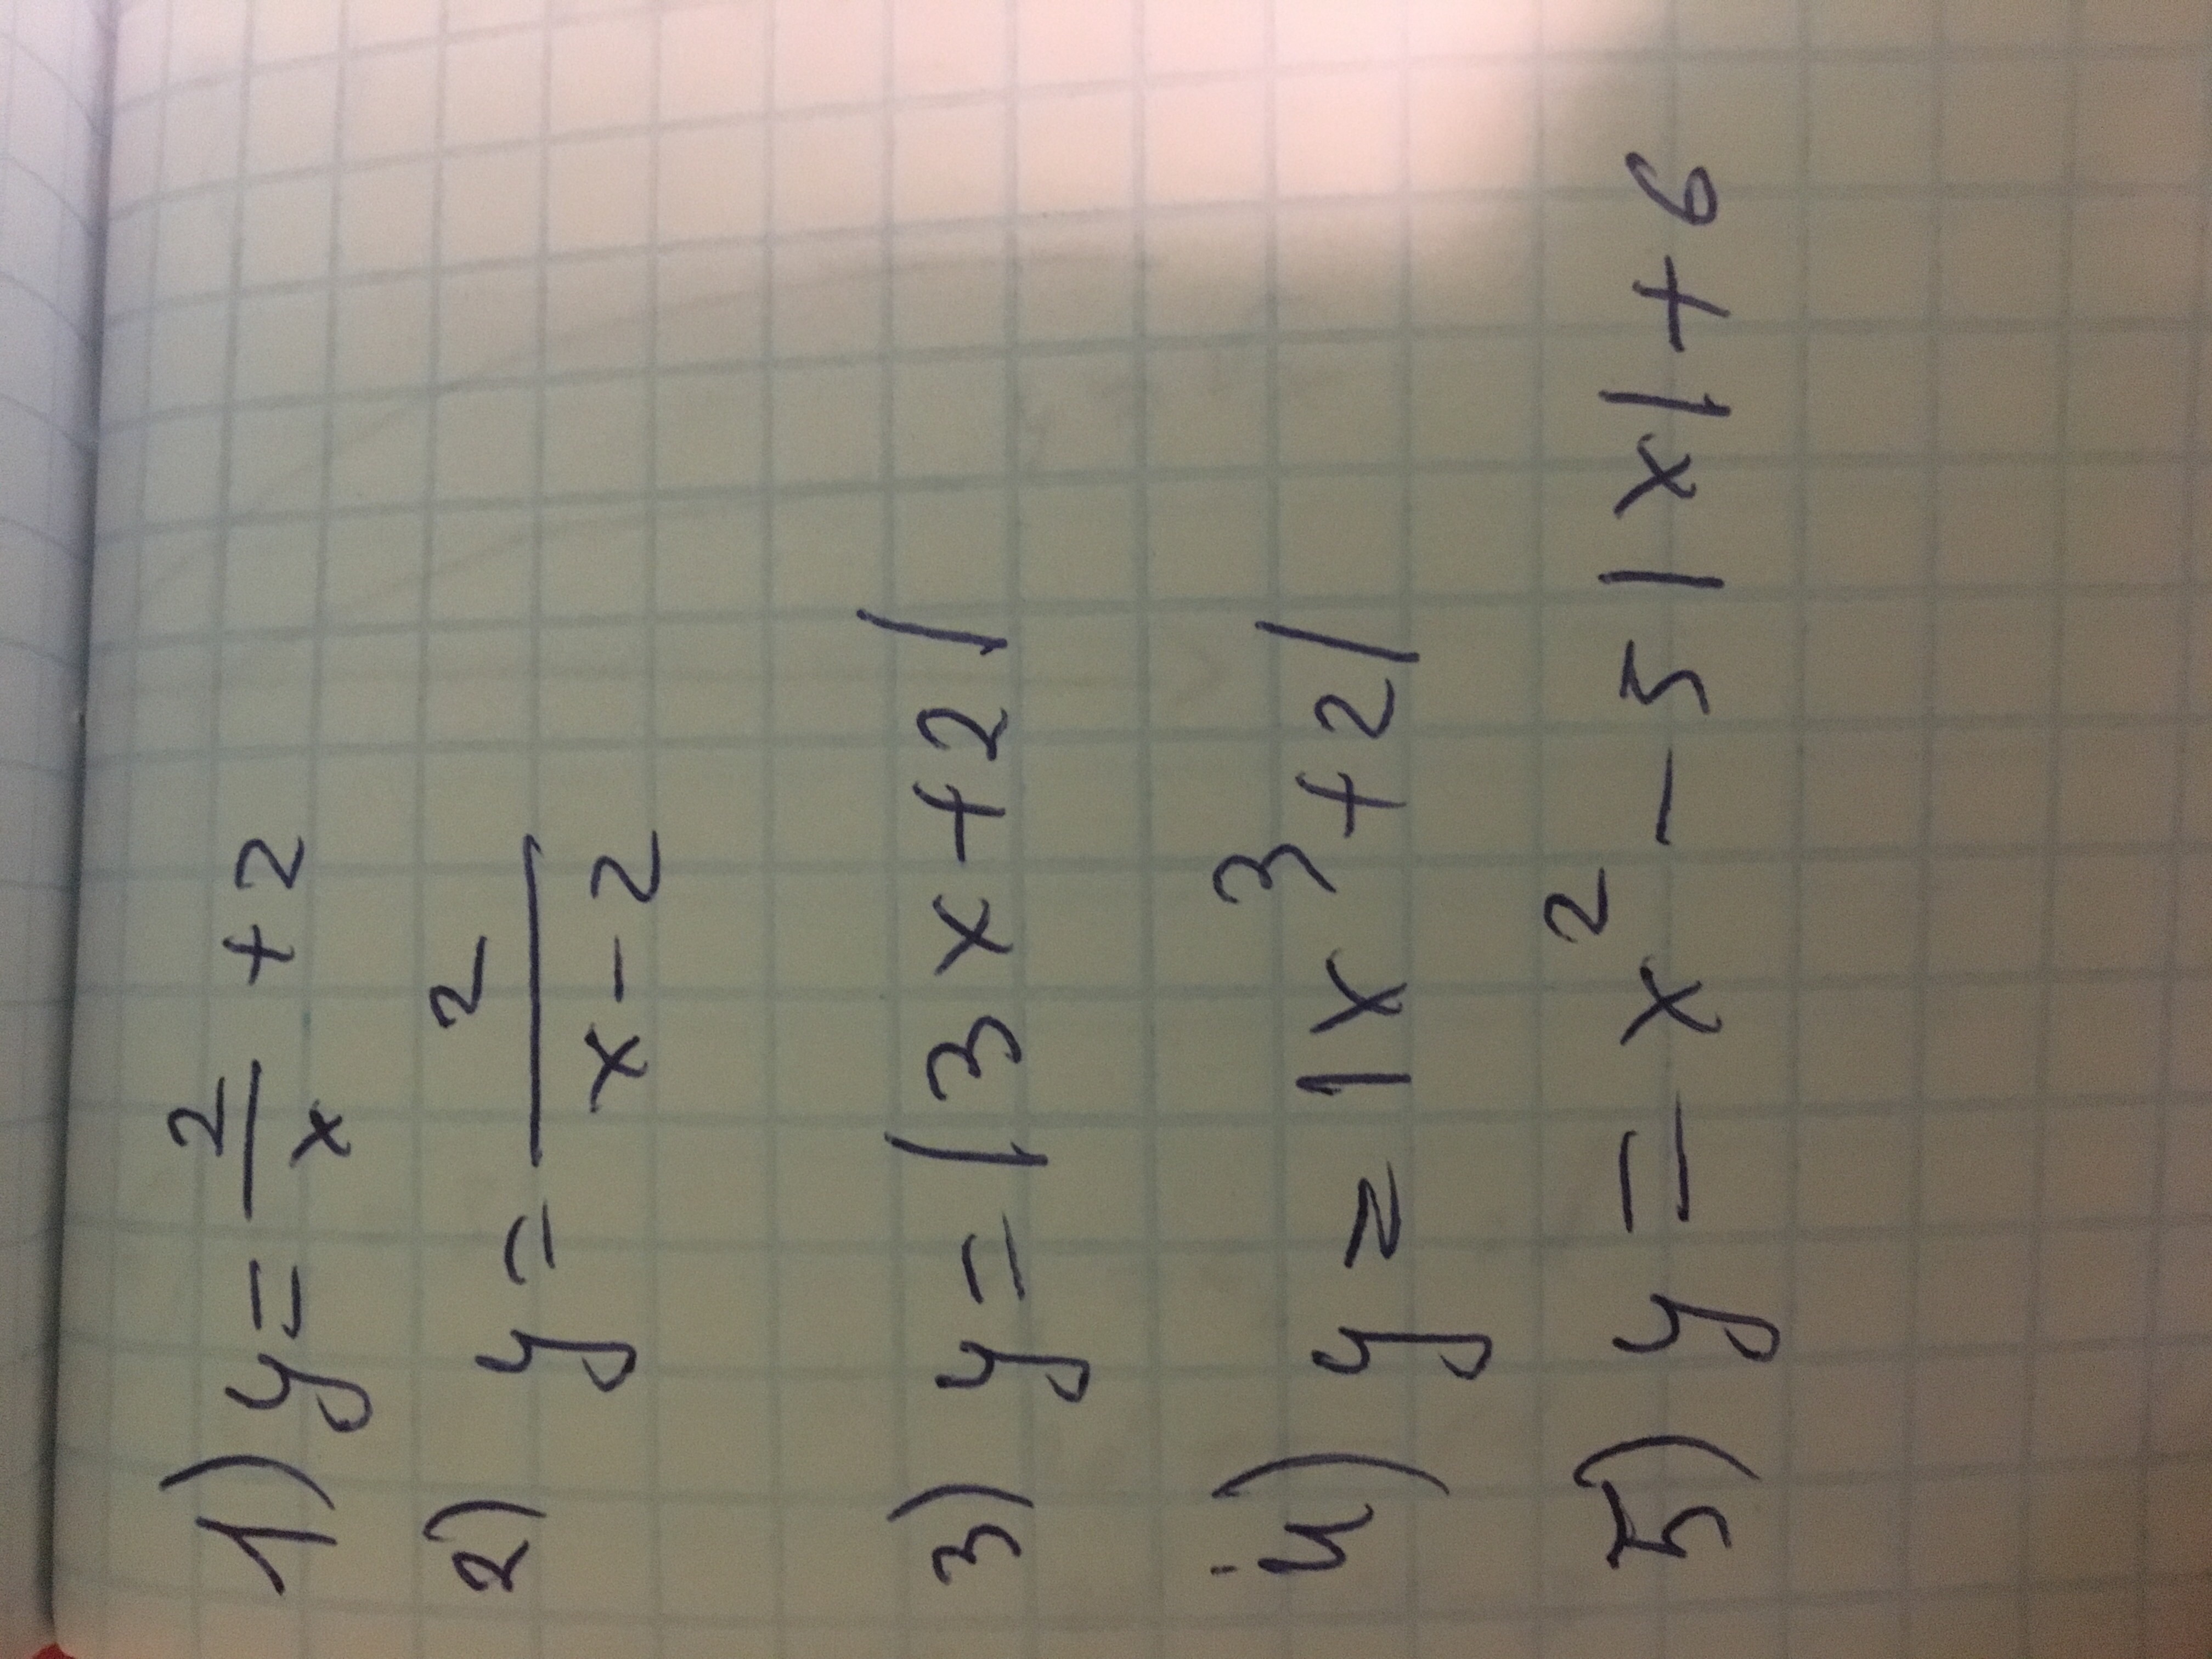 1) y = 2/x + 2
2) y = 2/(x - 2)
3) y = |3x + 2|
4) y = |x³ + 2|
5) y = x² - 5|x| + 6